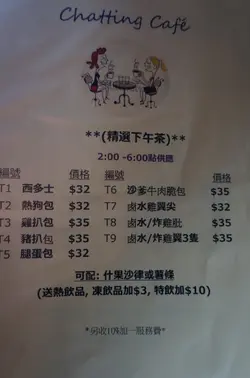 Chatting Café
**(精選下午茶)**
2:00 -6:00點供應
編號 價格 編號 價格
T1 西多士 $32 T6 沙爹牛肉脆包 $35
T2 熱狗包 $32 T7 鹵水雞翼尖 $32
T3 雞扒包 $35 T8 鹵水/炸雞肶 $35
T4 豬扒包 $35 T9 鹵水/炸雞翼3隻 $35
T5 腿蛋包 $32
可配: 什果沙律或薯條
(送熱飲品, 凍飲品加$3, 特飲加$10)
*另收10%加一服務費*